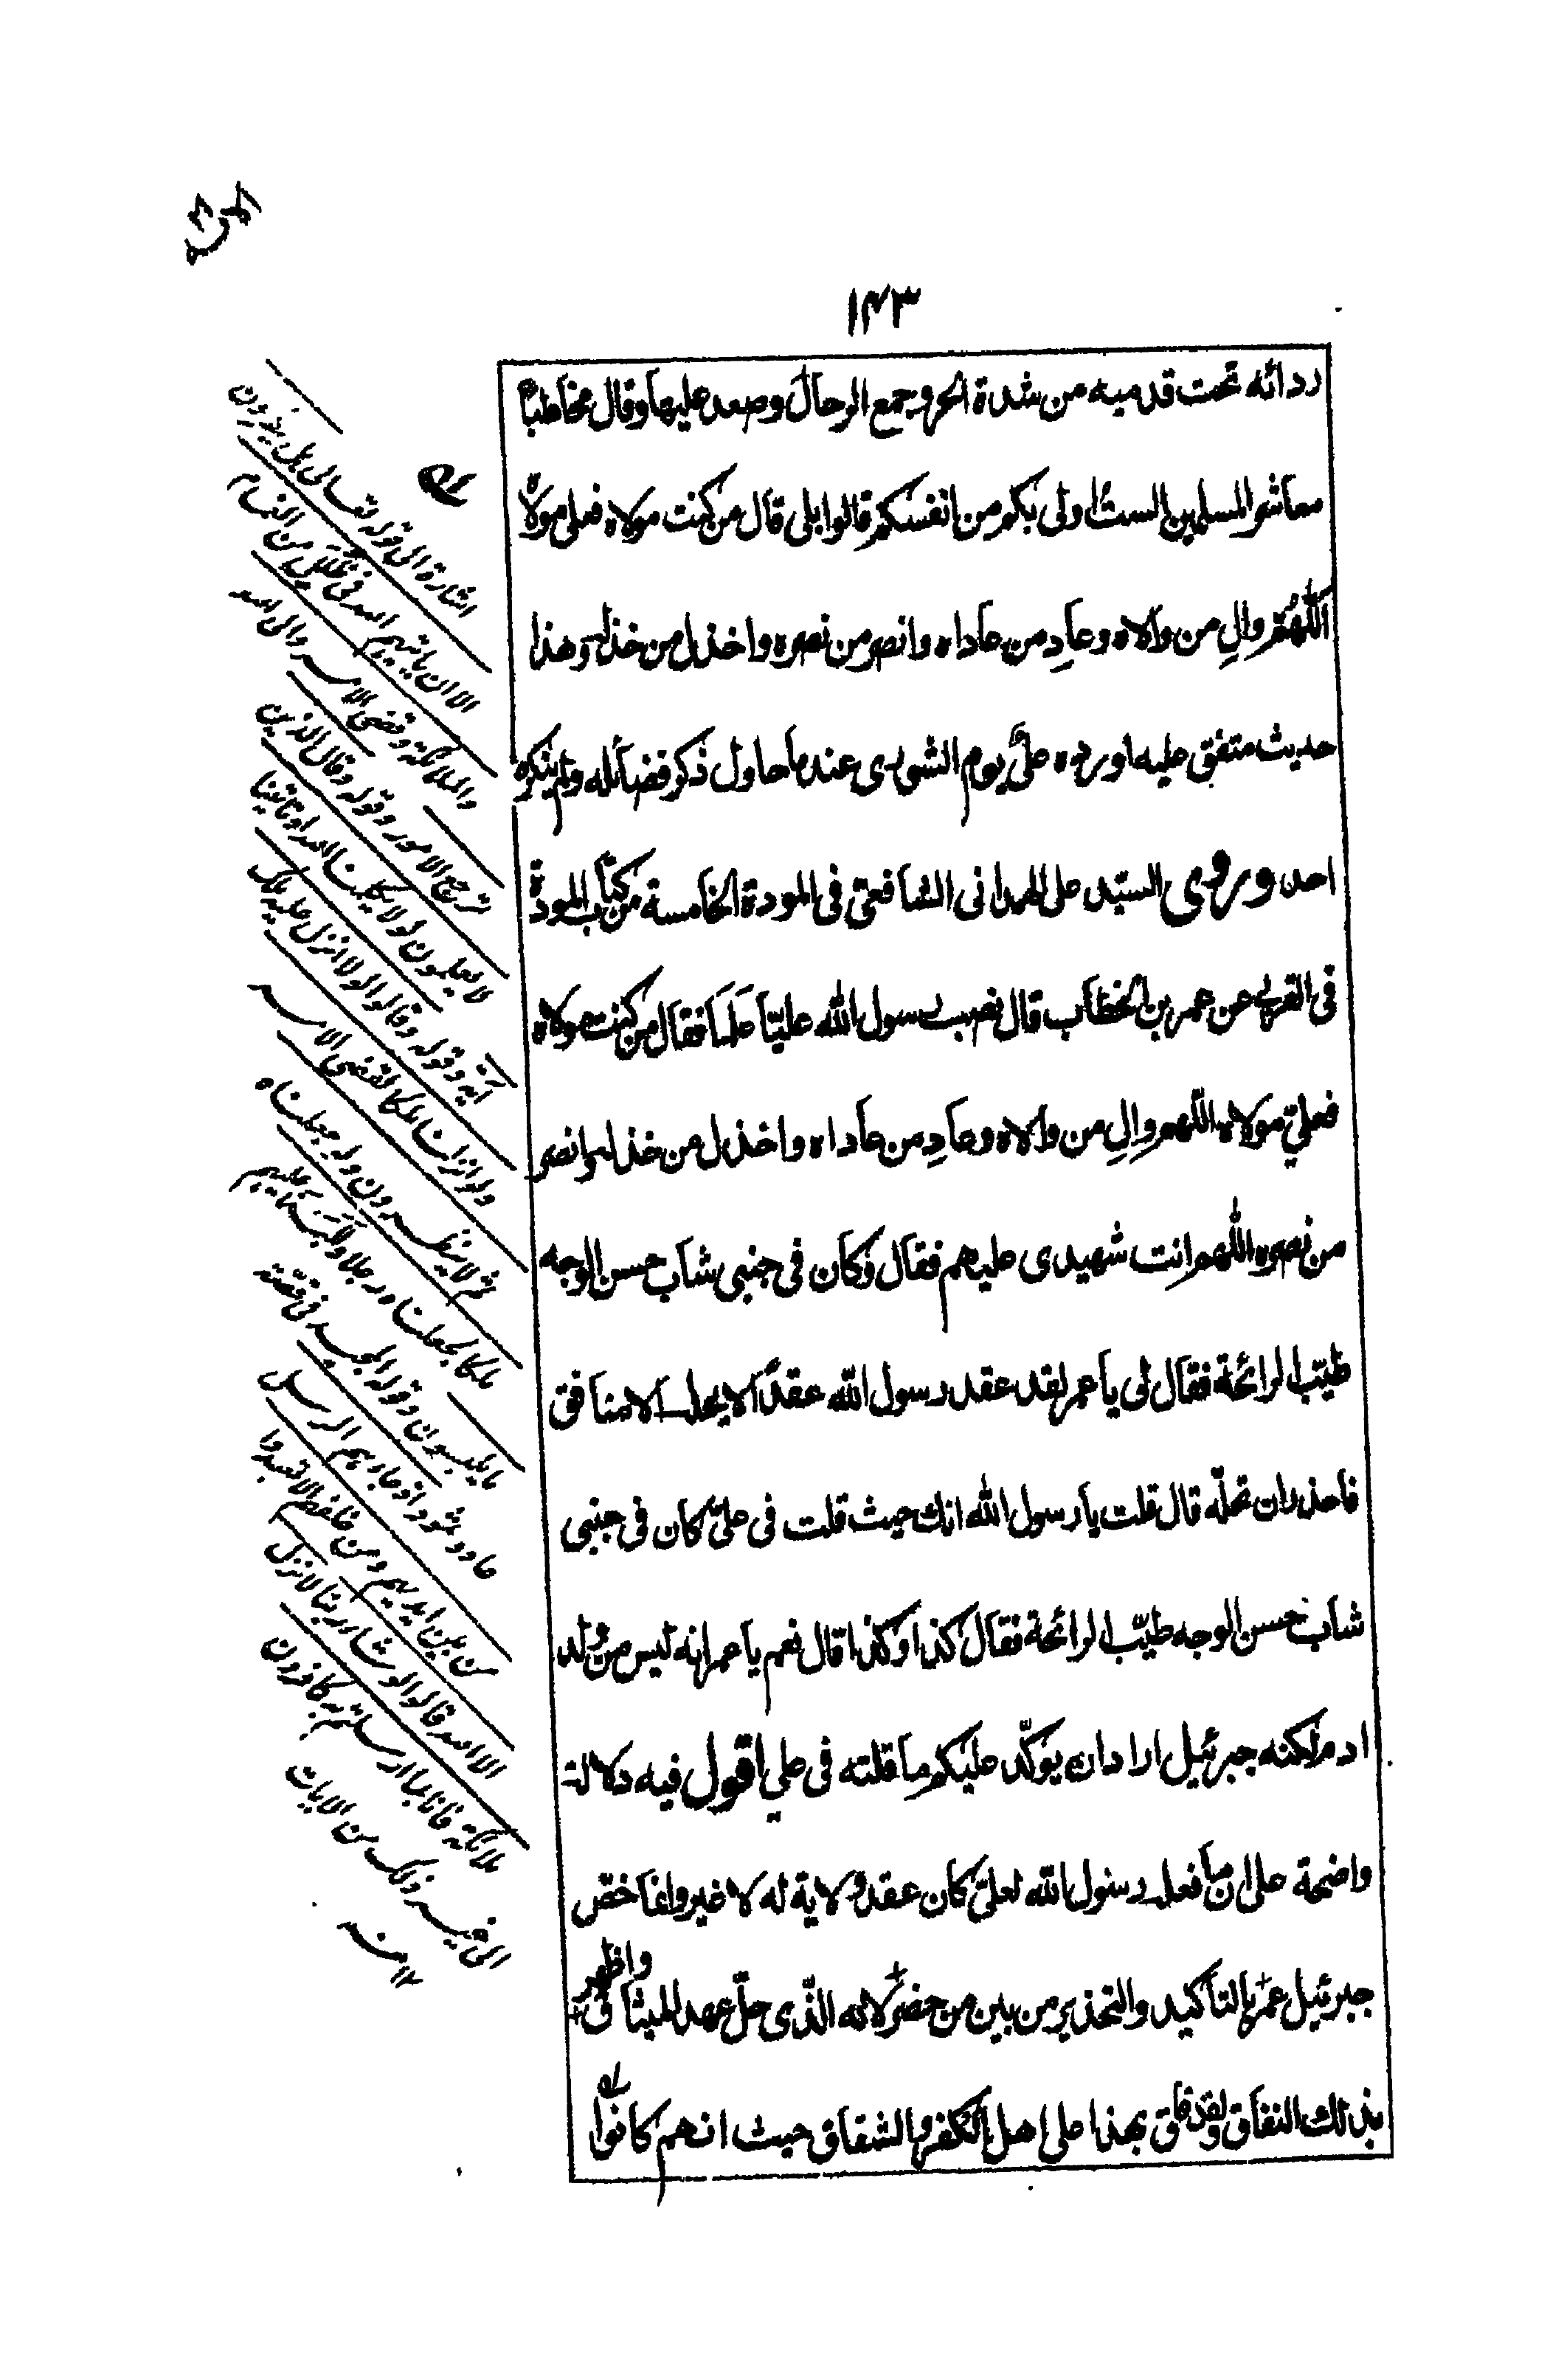 ١٤٣
ردائه تحت قدميه من شدة الحر وجمع الرحال وصعد عليها وقال مخاطبا
معاشر المسلمين الست اولى بكم من انفسكم قالوا بلى قال من كنت مولاه فعلي مولاه
اللّٰهُمّ والِ من والاه وعادِ من عاداه وانصر من نصره واخذل من خذله وهذا
حديث متفق عليه اورده عليّ يوم الشورى عندما حاول ذكر فضائله ولم ينكره
احد وروى السيّد علي الهمداني الشافعي في المودة الخامسة من كتاب المودّة
في القربى عن عمر بن الخطاب قال نصب رسول الله عليّا علَمَا فقال من كنت مولاه
فعليّ مولاه اللّهم والِ من والاه وعادِ من عاداه واخذل من خذله وانصر
من نصره اللّهم انت شهيدى عليهم فقال وكان فى جنبى شاب حسن الوجه
طيّب الرائحة فقال لى يا عمر لقد عقد رسول اللّه عقدًا لا يحله الا منافق
فاحذر ان تحلّه قال قلت يا رسول اللّه انك حيث قلت فى عليّ كان فى جنبى
شاب حسن الوجه طيّب الرائحة فقال كذا وكذا قال نعم يا عمر انه ليس من ولد
ادم لكنه جبرئيل اراد ان يوكّد عليكم ما قلته فى علي اقول فيه دلالة
واضحة على ان ما فعله رسول اللّه لعليّ كان عقد ولاية له لا غير وانما خصّ
جبرئيل عمر بالتاكيد والتحذير من بين من حضر لانه الذّى حلّ عهد الميثاق واظهر
بذلك النفاق ولقد فاق بهذا على اهل الكفر والشقاق حيث انهم كانوا
اشارة الى قوله تعالى هل ينظرون
الا ان ياتيهم اللّه فى ظُلَلٍ من الغمام
والملائكة وقضى الامر والى اللّه
ترجع الامور وقوله وقال الذين
لا يعلمون لولا يكلمنا اللّه او تاتينا
آية وقوله وقالوا لولا انزل عليه ملك
ولو انزلنا ملكا لقضى الامر
ثم لا ينظرون ولو جعلناه
ملكا لجعلناه رجلا ولَلَبَسنَا عليهم
ما يلبسون وقوله المجيد فى قصّة
عاد وثمود اذ جاءتهم الرسل
من بين ايديهم ومن خلفهم الا تعبدوا
الا اللّه قالوا لو شاء ربنا لانزل
ملائكة فانا بما ارسلتم به كافرون
الى غير ذلك من الآيات
١٢ منه